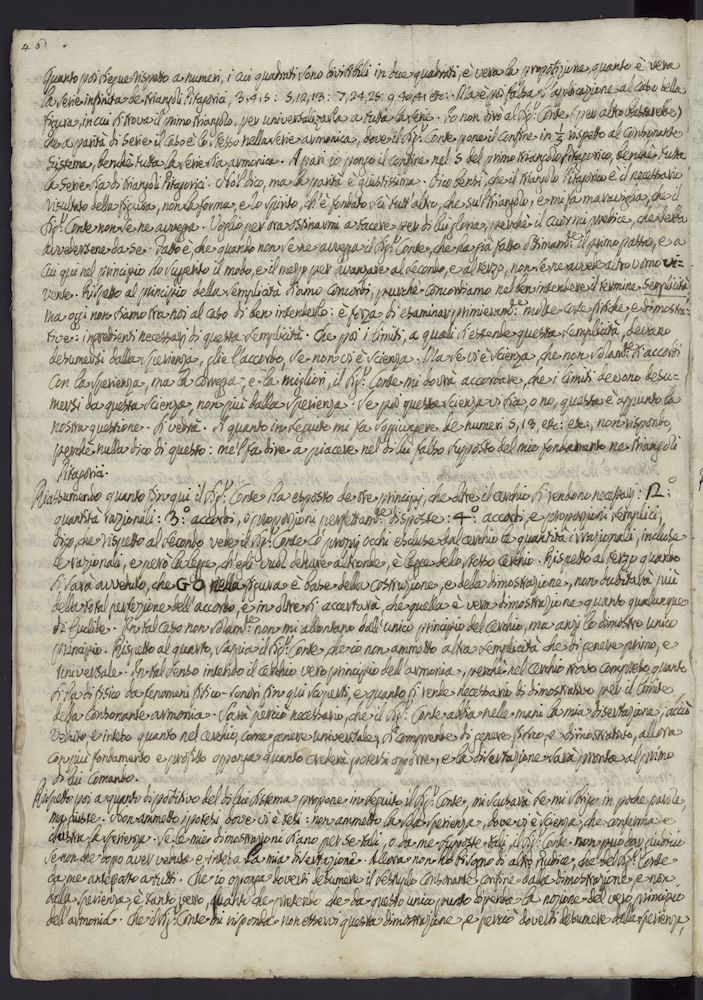 46
Quanto poi segue rispetto a numeri, i cui quadrati sono divisibili in due quadrati, è vera la proposizione, quanto è vera
la serie infinita de triangoli Pitagorici, 3,4,5: 5,12,13: 7,24,25: 9,40,41 etc: Ma è poi falsa l'applicazione al caso della
figura, in cui si trova il primo triangolo, per universalizzarla a tutta la serie. Io non dirò al Sig: Conte (per altro basterebbe)
che a parità di serie il caso è lo stesso nella serie armonica, dove il Sig: Conte pone il confine in rispetto al Consonante
Sistema, benchè tutta la serie sia armonica. A pari io pongo il confine nel 5 del primo triangolo Pitagorico, benchè tutta
la serie sia di triangoli Pitagorici. Nol dico, ma la parità è giustissima. Dico bensì, che il triangolo Pitagorico è il necessario
risultato della figura, non la forma, e lo spirito, ch'è fondato su tutt'altro, che sul triangolo, e mi fa maraviglia, che il
Sig: Conte non se ne avvegga. Voglio per ora ostinarmi a tacere per di lui gloria, perchè il cuor mi predice, che debba
avvedersene da se. Fatto è, che quando non se ne avvegga il Sig: Conte, che ha già fatto ottimam:te il primo passo, e a
cui qui nel principio ho suggerito il modo, e il mezzo per avanzare al secondo, e al terzo, non se ne avvede altro uomo vi-
vente. Rispetto al principio della semplicità siamo concordi, purchè concordiamo nel ben intendere il termine semplicità
ma oggi non siamo tra noi al caso di ben intenderlo: è forza di esaminar primieram:te molte cose fisiche e dimostra-
tive: ingredienti necessarj di questa semplicità. Che poi i limiti, a quali si estende questa semplicità, devano
desumersi dalla sperienza, glie l'accordo, se non vi è scienza. Ma se vi è scienza, che non solam:te si accordi
con la sperienza, ma la corregga, e la migliori, il Sig: Conte mi dovrà accordare, che i limiti devono desu-
mersi da questa scienza, non più dalla sperienza. Se poi questa scienza vi sia, o no, questa è appunto la
nostra questione. Si vedrà. A quanto in seguito mi fa soggiungere de numeri 5, 13, etc: etc: non rispondo,
perchè nulla dico di questo: me lo fa dire a piacere nel di lui falso supposto del mio fondamento ne triangoli
Pitagorici.
Riassumendo quanto fin qui il Sig: Conte ha esposto de tre principj, che oltre il cerchio si rendono necessarj: 2°
quantità razionali: 3° accordi, o proporzioni perfettam:te disposte: 4° accordi, e proporzioni semplici,
dico, che rispetto al secondo vede il Sig: Conte co proprj occhi escluse dal cerchio le quantità irrazionali, incluse
le razionali, e però la legge, ch'egli vuol dedurre altronde, è legge dello stesso Cerchio. Rispetto al terzo quando
si sarà avveduto, che GO nella figura è base della costruzione, e della dimostrazione, non dubiterà più
della total perfezione dell'accordo, e in oltre si accerterà, che quella è vera dimostrazione quanto qualunque
di Euclide. In tal caso non solam:te non mi allontano dall'unico principio del Cerchio, ma anzi lo dimostro unico
principio. Rispetto al quarto, sappia il Sig: Conte, che io non ammetto altra semplicità che di genere primo, e
universale. In tal senso intendo il Cerchio vero principio dell'armonia, perchè nel Cerchio trovo compreso quanto
si sia di fisico da fenomeni fisico-sonori fin qui scoperti, e quanto si rende necessario di dimostrativo per il limite
della consonante armonia. Sarà perciò necessario, che il Sig: Conte abbia nelle mani la mia dissertazione, acciò
veduto e inteso quanto nel Cerchio, come genere universale, si comprende di genere fisico, e dimostrativo, allora
con più fondamento e profitto opponga quanto crederà potersi opporre, e la dissertazione sarà pronta al primo
di lui comando.
Rispetto poi a quanto di positivo del di lui sistema propone in seguito il Sig: Conte, mi scuserà se mi sbrigo in poche parole,
ma giuste. Non ammetto ipotesi dove vi è tesi: non ammetto la sola sperienza, dove vi è scienza, che conferma e
illustra la sperienza. Se le mie dimostrazioni siano per se tali, o da me supposte tali, il Sig: Conte non può dar giudizio
se non che dopo aver veduta e intesa la mia dissertazione. Allora non ho bisogno di altro giudice, che del Sig: Conte
da me anteposto a tutti. Che io opponga doversi desumere il sestuplo consonante confine dalla dimostrazione, e non
dalla sperienza, è tanto vero, quanto che pretendo che da questo unico punto dipenda la nozione del vero principio
dell'armonia. Che il Sig: Conte mi risponda non esservi questa dimostrazione, e perciò doversi desumere dalla sperienza,